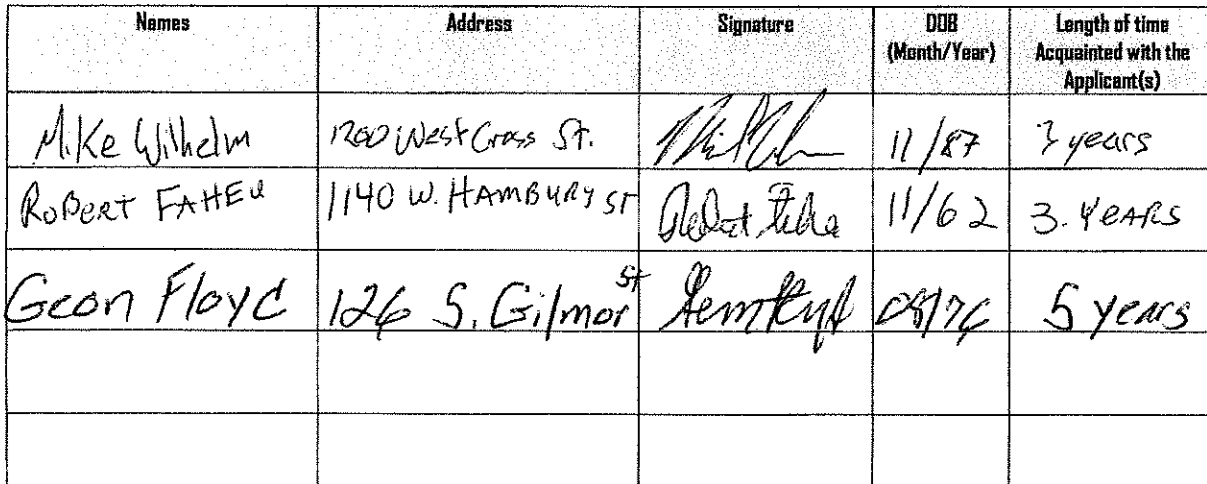 Names Address Signature DOB (Month/Year) Length of time Acquainted with the Applicant(s)
Mike Wilhelm 1200 West Cross St. 11/87 3 years
ROBERT FAHEY 1140 W. HAMBURY ST 11/62 3. YEARS
Geon Floyd 126 S. Gilmor St 5 years